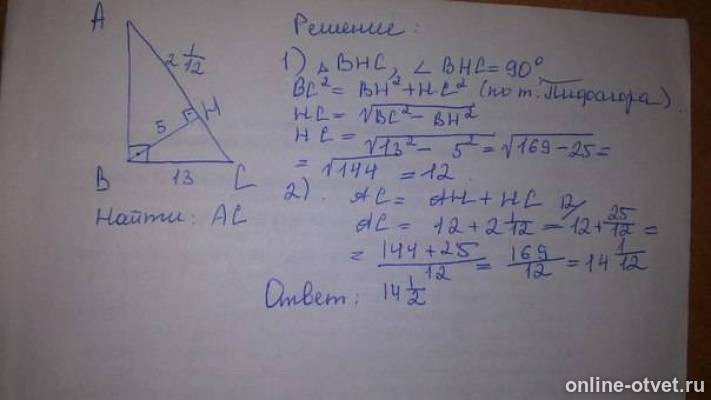 A
2 1/12
H
5
B
13
C
Найти: AC
Решение:
1) △ BHC, ∠ BHC = 90°
BC² = BH² + HC² (по т. Пифагора)
HC = √BC² - BH²
HC = √13² - 5² = √169 - 25 =
= √144 = 12
2). AC = AH + HC 12/
AC = 12 + 2 1/12 = 12 + 25/12 =
= 144 + 25/12 = 169/12 = 14 1/12
Ответ: 14 1/2
online-otvet.ru